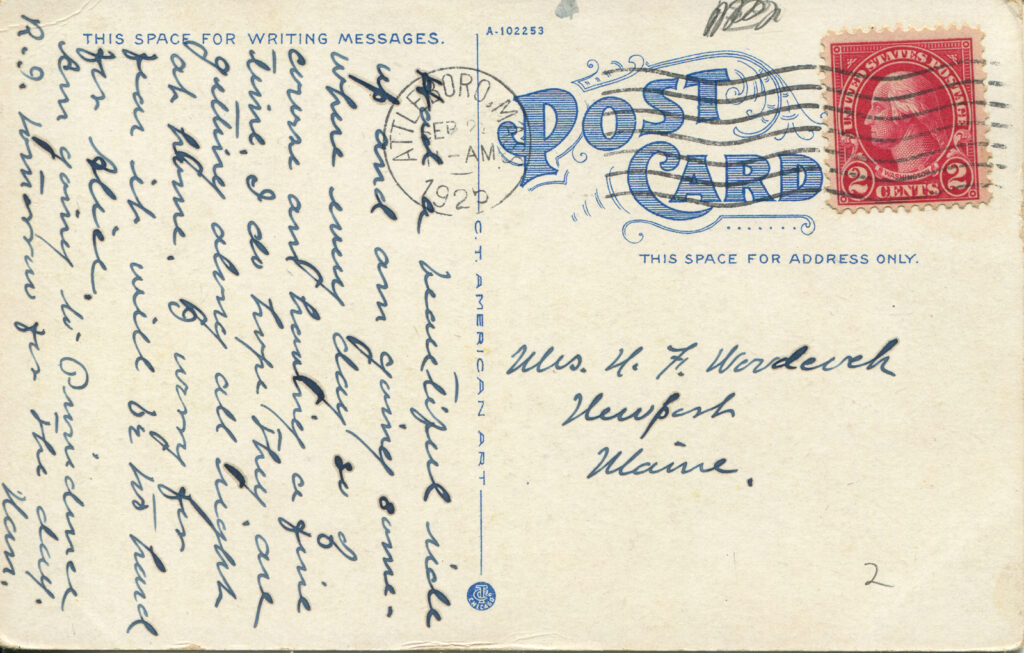 THIS SPACE FOR WRITING MESSAGES.
Had a beautiful ride
up and am going some-
where every day so of
course am having a fine
time. I do hope they are
getting along all right
at home. I worry for
fear it will be too hard
for Alice.
Am going to Providence
R.I. tomorrow for the day.
Nan.
A-102253
C.T. AMERICAN ART
CHICAGO
ATTLEBORO, M
SEP
AM
1925
POST
CARD
UNITED STATES POSTAGE
WASHINGTON
2 CENTS 2
THIS SPACE FOR ADDRESS ONLY.
Mrs. H. F.
Newport
Maine.
2